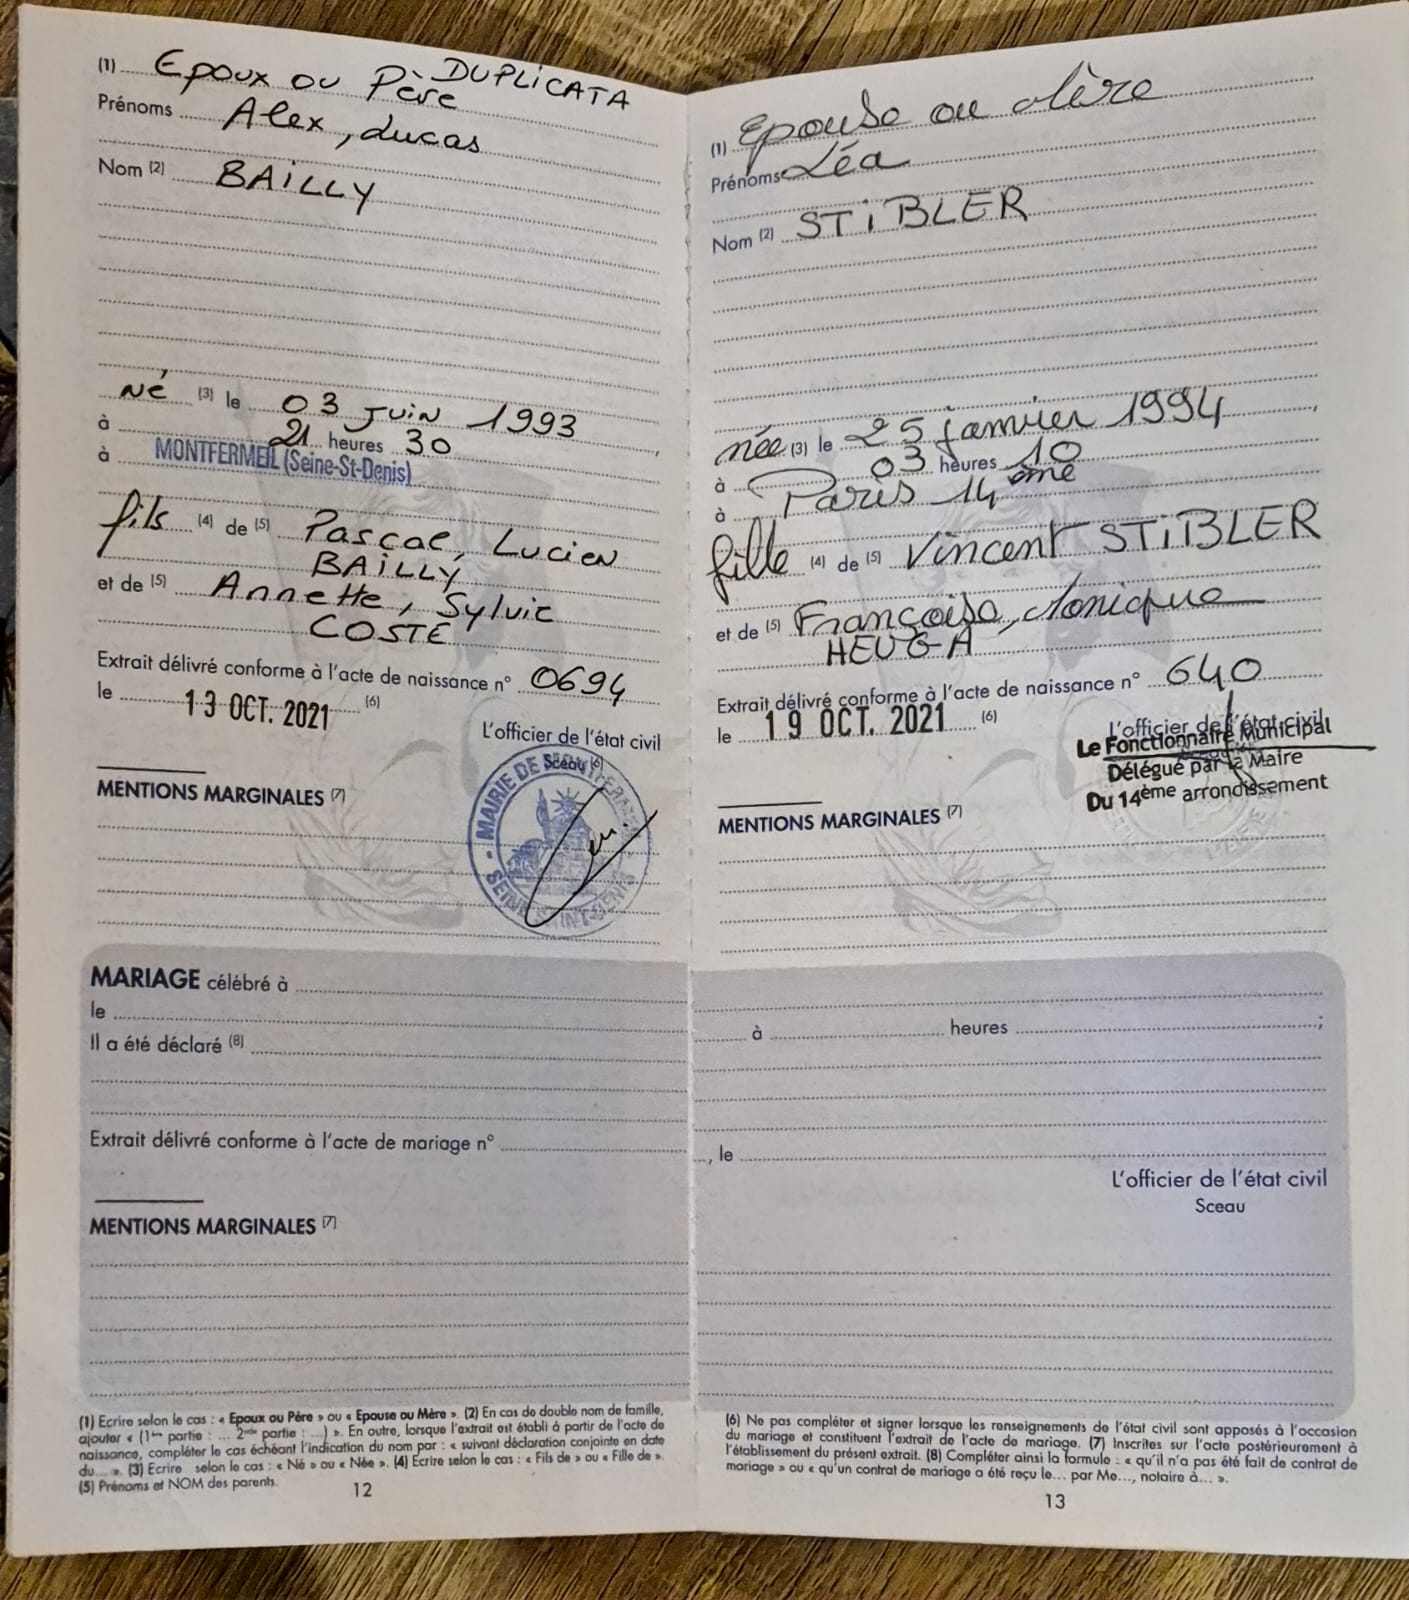 DUPLICATA
(1) Epoux ou Père
Prénoms Alex, Lucas
Nom (2) BAiLLY
Né (3) le 03 Juin 1993
à 21 heures 30
à MONTFERMEIL (Seine-St-Denis)
fils (4) de (5) Pascal, Lucien
BAiLLY
et de (5) Annette, Sylvie
COSTE
Extrait délivré conforme à l'acte de naissance n° 0694
le 13 OCT. 2021 (6)
L'officier de l'état civil
Sceau (6)
MAIRIE DE MONTFERMEIL
SEINE SAINT-DENIS
MENTIONS MARGINALES (7)
MARIAGE célébré à
le
Il a été déclaré (8)
Extrait délivré conforme à l'acte de mariage n°
MENTIONS MARGINALES (7)
(1) Ecrire selon le cas : « Epoux ou Père » ou « Epouse ou Mère ». (2) En cas de double nom de famille,
ajouter « (1ère partie : ... 2nde partie : ...) ». En outre, lorsque l'extrait est établi à partir de l'acte de
naissance, compléter le cas échéant l'indication du nom par : « suivant déclaration conjointe en date
du... ». (3) Ecrire selon le cas : « Né » ou « Née ». (4) Ecrire selon le cas : « Fils de » ou « Fille de ».
(5) Prénoms et NOM des parents.
12
(1) Epouse ou Mère
Prénoms Léa
Nom (2) STiBLER
née (3) le 25 janvier 1994,
à 03 heures 10
à Paris 14ème
fille (4) de (5) Vincent STiBLER
et de (5) Françoise, Monique
HEUGA
Extrait délivré conforme à l'acte de naissance n° 640
le 19 OCT. 2021 (6)
L'officier de l'état civil
Le Fonctionnaire Municipal
Délégué par la Maire
Du 14ème arrondissement
MENTIONS MARGINALES (7)
à heures ;
, le
L'officier de l'état civil
Sceau
(6) Ne pas compléter et signer lorsque les renseignements de l'état civil sont apposés à l'occasion
du mariage et constituent l'extrait de l'acte de mariage. (7) Inscrites sur l'acte postérieurement à
l'établissement du présent extrait. (8) Compléter ainsi la formule : « qu'il n'a pas été fait de contrat de
mariage » ou « qu'un contrat de mariage a été reçu le... par Me..., notaire à... ».
13